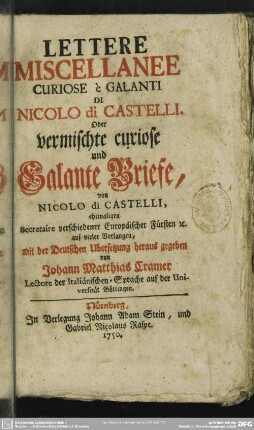 LETTERE
MISCELLANEE
CURIOSE è GALANTI
DI
NICOLO di CASTELLI.
Oder
vermischte curiose
und
Galante Briefe,
von
NICOLO di CASTELLI,
ehemaligen
Secretaire verschiedener Europäischer Fürsten ꝛc.
auf vieler Verlangen,
mit der Deutschen Ubersetzung heraus gegeben
von
Johann Matthias Cramer
Lectore der Italiänischen-Sprache auf der Uni-
versität Göttingen.
Nürnberg,
In Verlegung Johann Adam Stein, und
Gabriel Nicolaus Raspe.
1750.
DFG